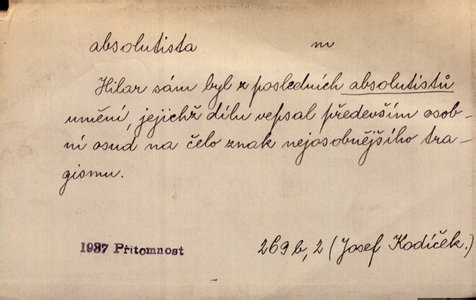 absolutista m
Hilar sám byl z posledních absolutistů
umění, jejichž dílu vepsal především osob-
ní osud na čelo znak nejosobnějšího tra-
gismu.
1937 Přítomnost 269b, 2 (Josef Kodíček.)